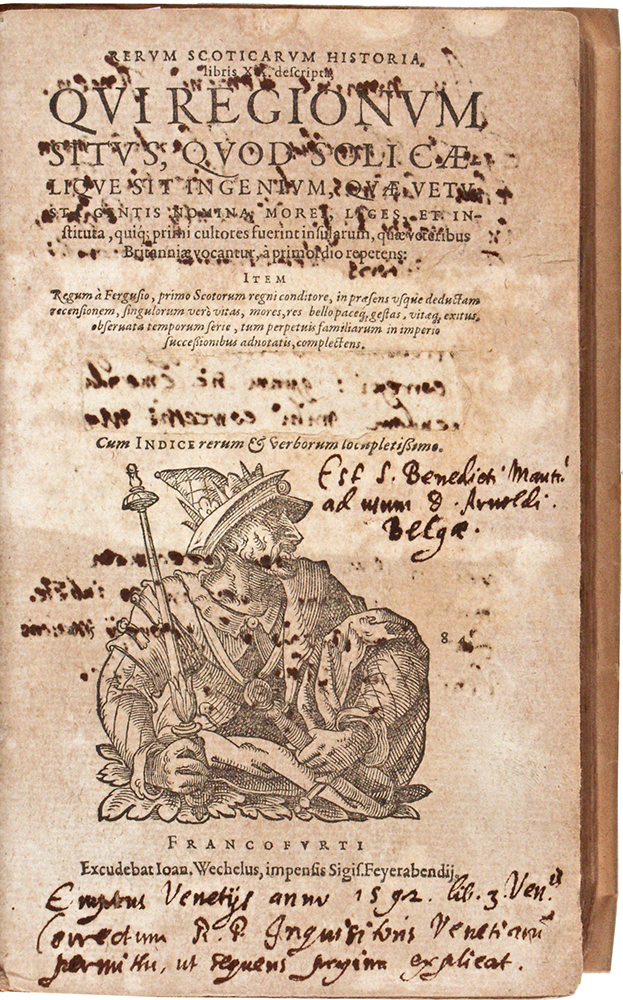 RERVM SCOTICARVM HISTORIA,
libris XX. descripta,
QVI REGIONVM
SITVS, QVOD SOLI CÆ-
LIQVE SIT INGENIVM, QVÆ VETV-
STÆ GENTIS NOMINA, MORES, LEGES, ET IN-
stituta, quiq; primi cultores fuerint insularum, quæ veteribus
Britanniæ vocantur, à primordio repetens:
ITEM
Regum à Fergusio, primo Scotorum regni conditore, in præsens vsque deductam
recensionem, singulorum verò vitas, mores, res bello paceq; gestas, vitæq; exitus,
obseruata temporum serie, tum perpetuis familiarum in imperio
successionibus adnotatis, complectens.
Cum INDICE rerum & verborum locupletissimo.
Est S. Benedicti Mant.
ad usum D. Arnoldi
Belgæ.
8 4
FRANCOFVRTI
Excudebat Ioan. Wechelus, impensis Sigis. Feyerabendij.
Emptus Venetijs anno 1592. lib. 3 Ven.
Correctum R. P. Inquisitoris Venetiarũ
permissu, ut sequens pagina explicat.